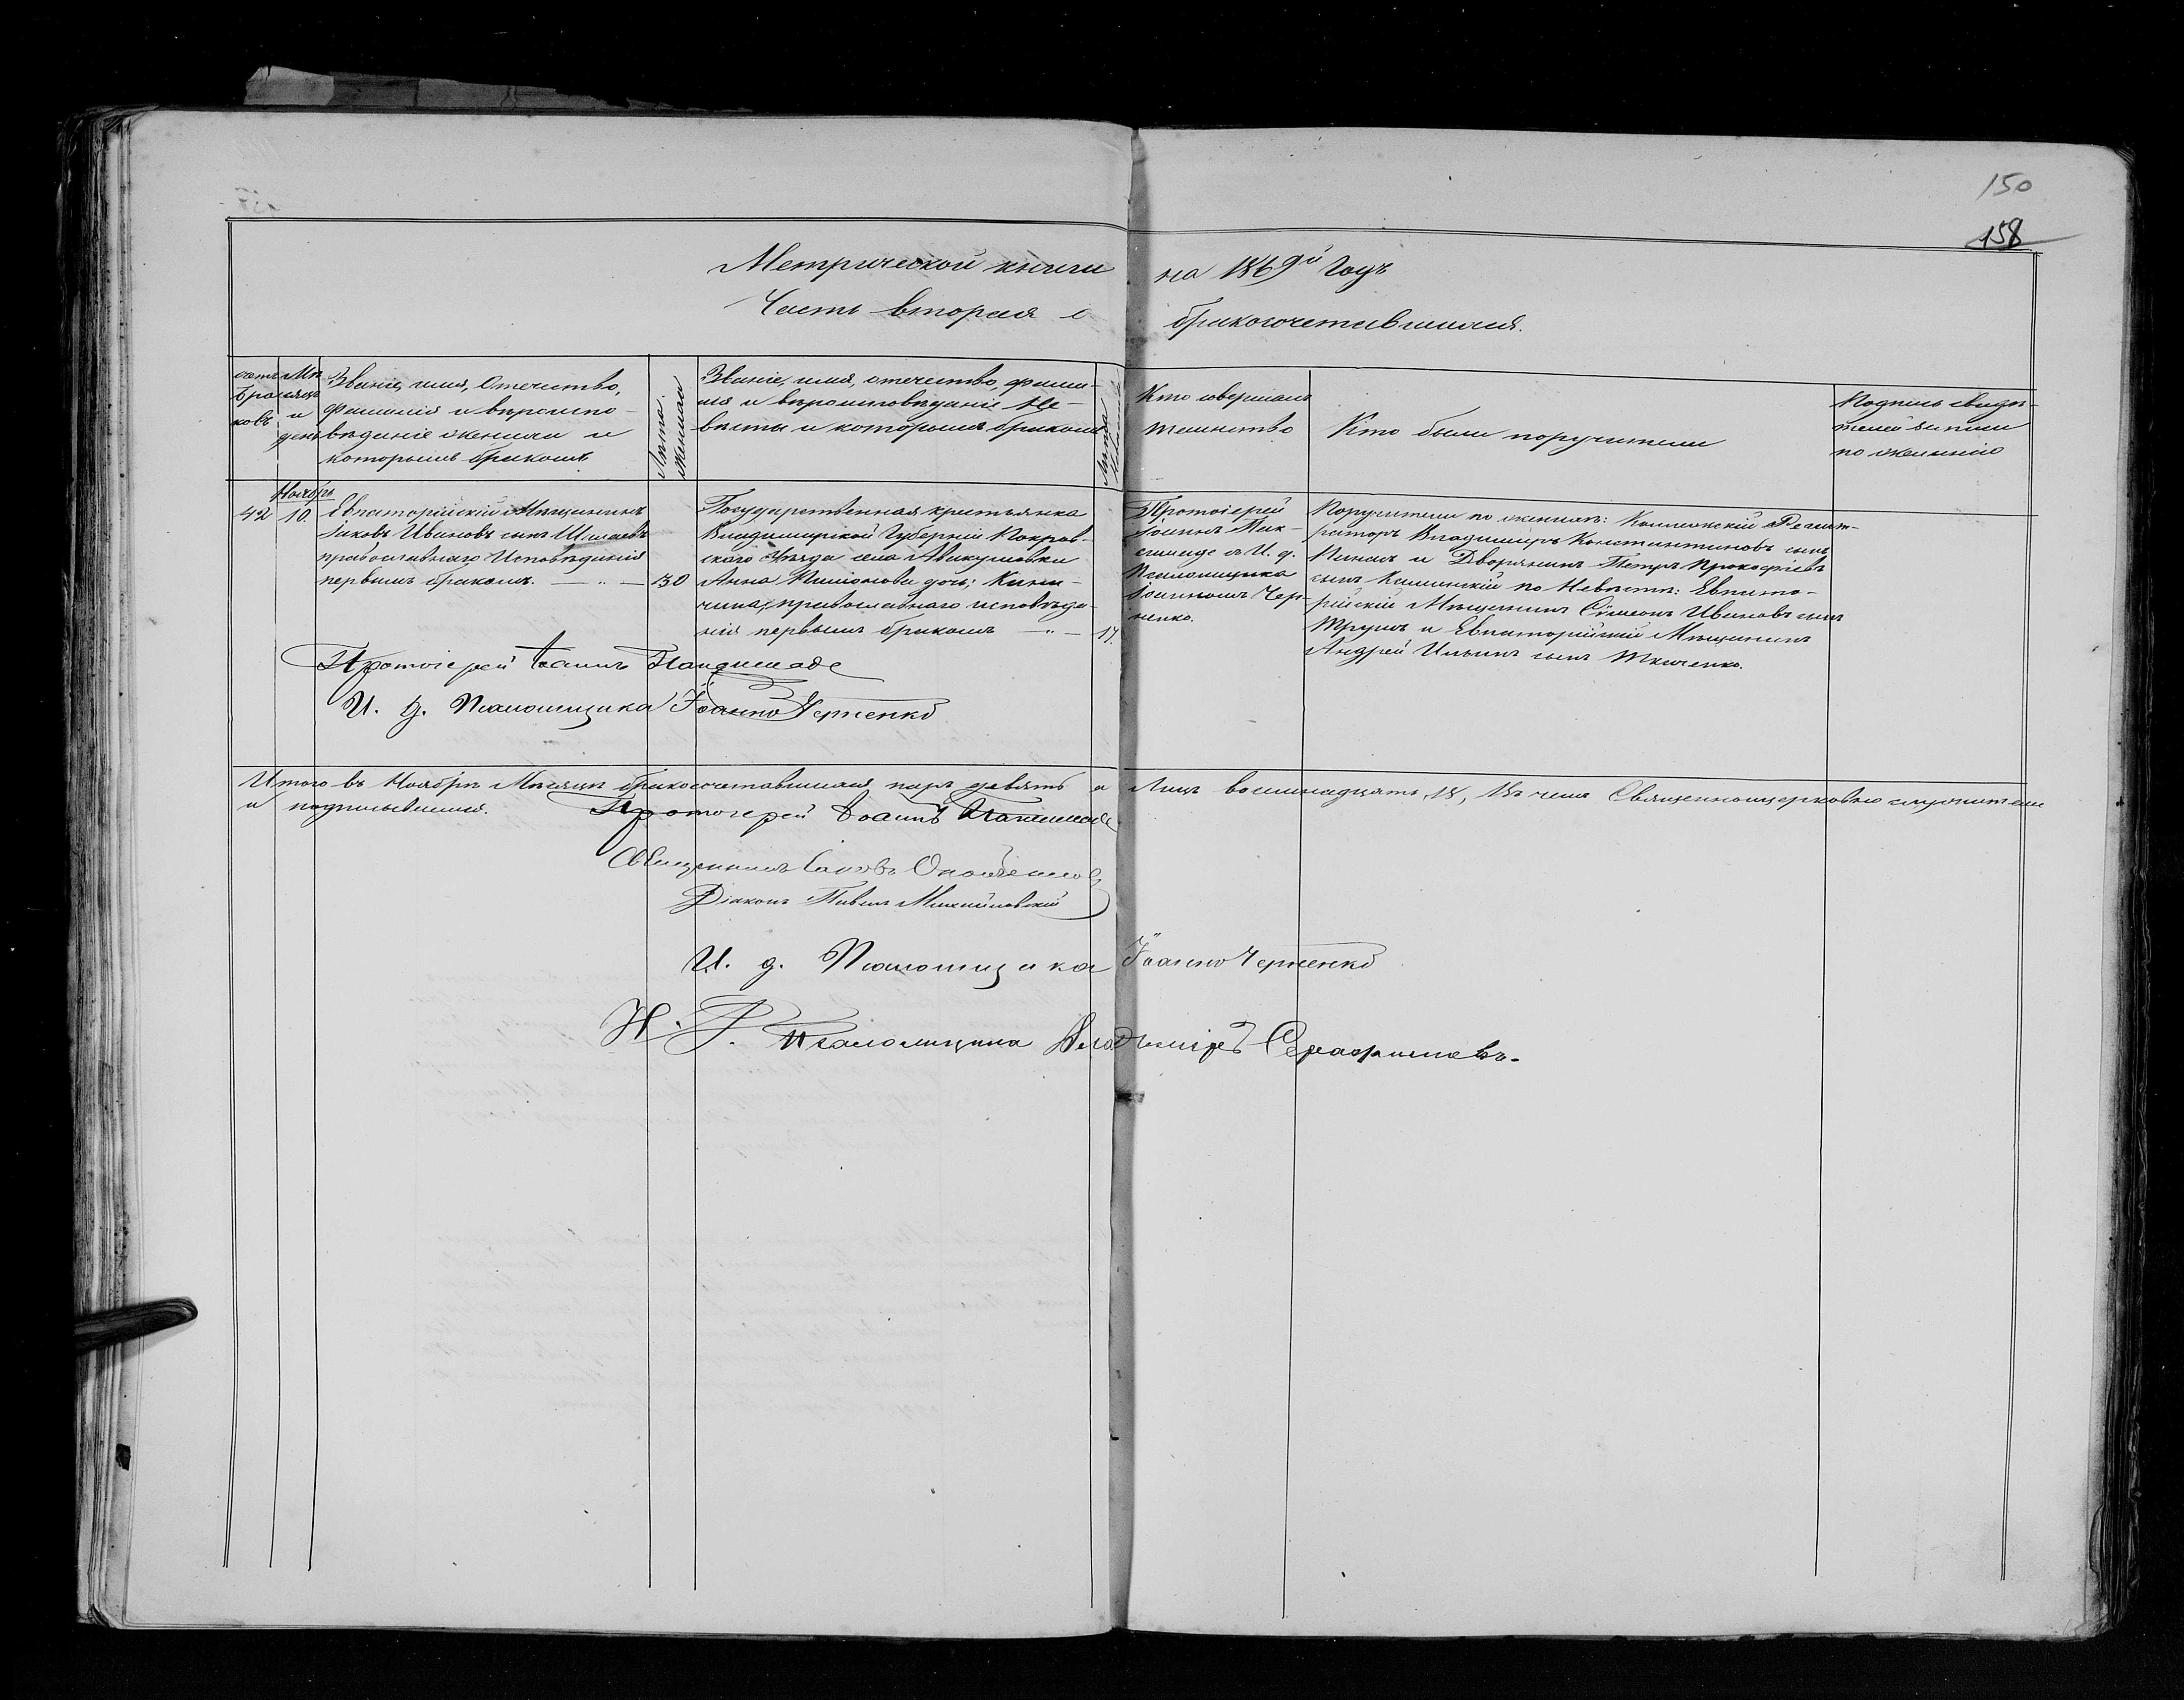 150
158
Метрической книги на 1869й Годъ
Часть вторая о бракосочетавшихся.
Счетъ браковъ
Мѣсяцъ и день
Званіе, имя, Отечество,
фамилія и вѣроиспо-
вѣданіе жениха и
которымъ бракомъ
Лѣта жениха
Званіе, имя, отечество, фами-
лія и вѣроисповѣданіе Не-
вѣсты и которымъ бракомъ
Лѣта
Кто совершалъ
таинство
Кто были поручители
Подпись свидѣ-
телей записи
по желанію
Ноябрь
42
10.
Евпаторійскій Мѣщанинъ
Іаковъ Ивановъ сынъ
православнаго Исповѣданія
первымъ бракомъ.
30
Государственная крестьянка
Владимірской Губерніи Покров-
скаго Уѣзда села
Анна дочь;
православнаго исповѣда-
нія первымъ бракомъ
17.
Протоіерей
Іоаннъ
съ И. д.
Псаломщика
Іоанномъ Чер-
ненко.
Поручители по женихѣ: Коллежскій Регист-
раторъ Владиміръ Константиновъ сынъ
и Дворянинъ Петръ Прокофіевъ
сынъ по Невѣстѣ: Евпато-
рійскій Мѣщанинъ Сѵмеонъ Ивановъ сынъ
и Евпаторійскій Мѣщанинъ
Андрей Ильинъ сынъ Ткаченко.
Протоіерей Іоаннъ
И. д. Псаломщика Іоаннъ Черненко
Итого въ Ноябрѣ Мѣсяцѣ бракосочетавшихся паръ девять а Лицъ восемнадцать 18, Въ чемъ Священноцерковнослужители
и подписываемся.
Протоіерей Іоаннъ
Священникъ Іаковъ
Діаконъ Павелъ Михайловскій
И. д. Псаломщика Іоаннъ Черненко
И. д. Псаломщика Владиміръ Серафимовъ.